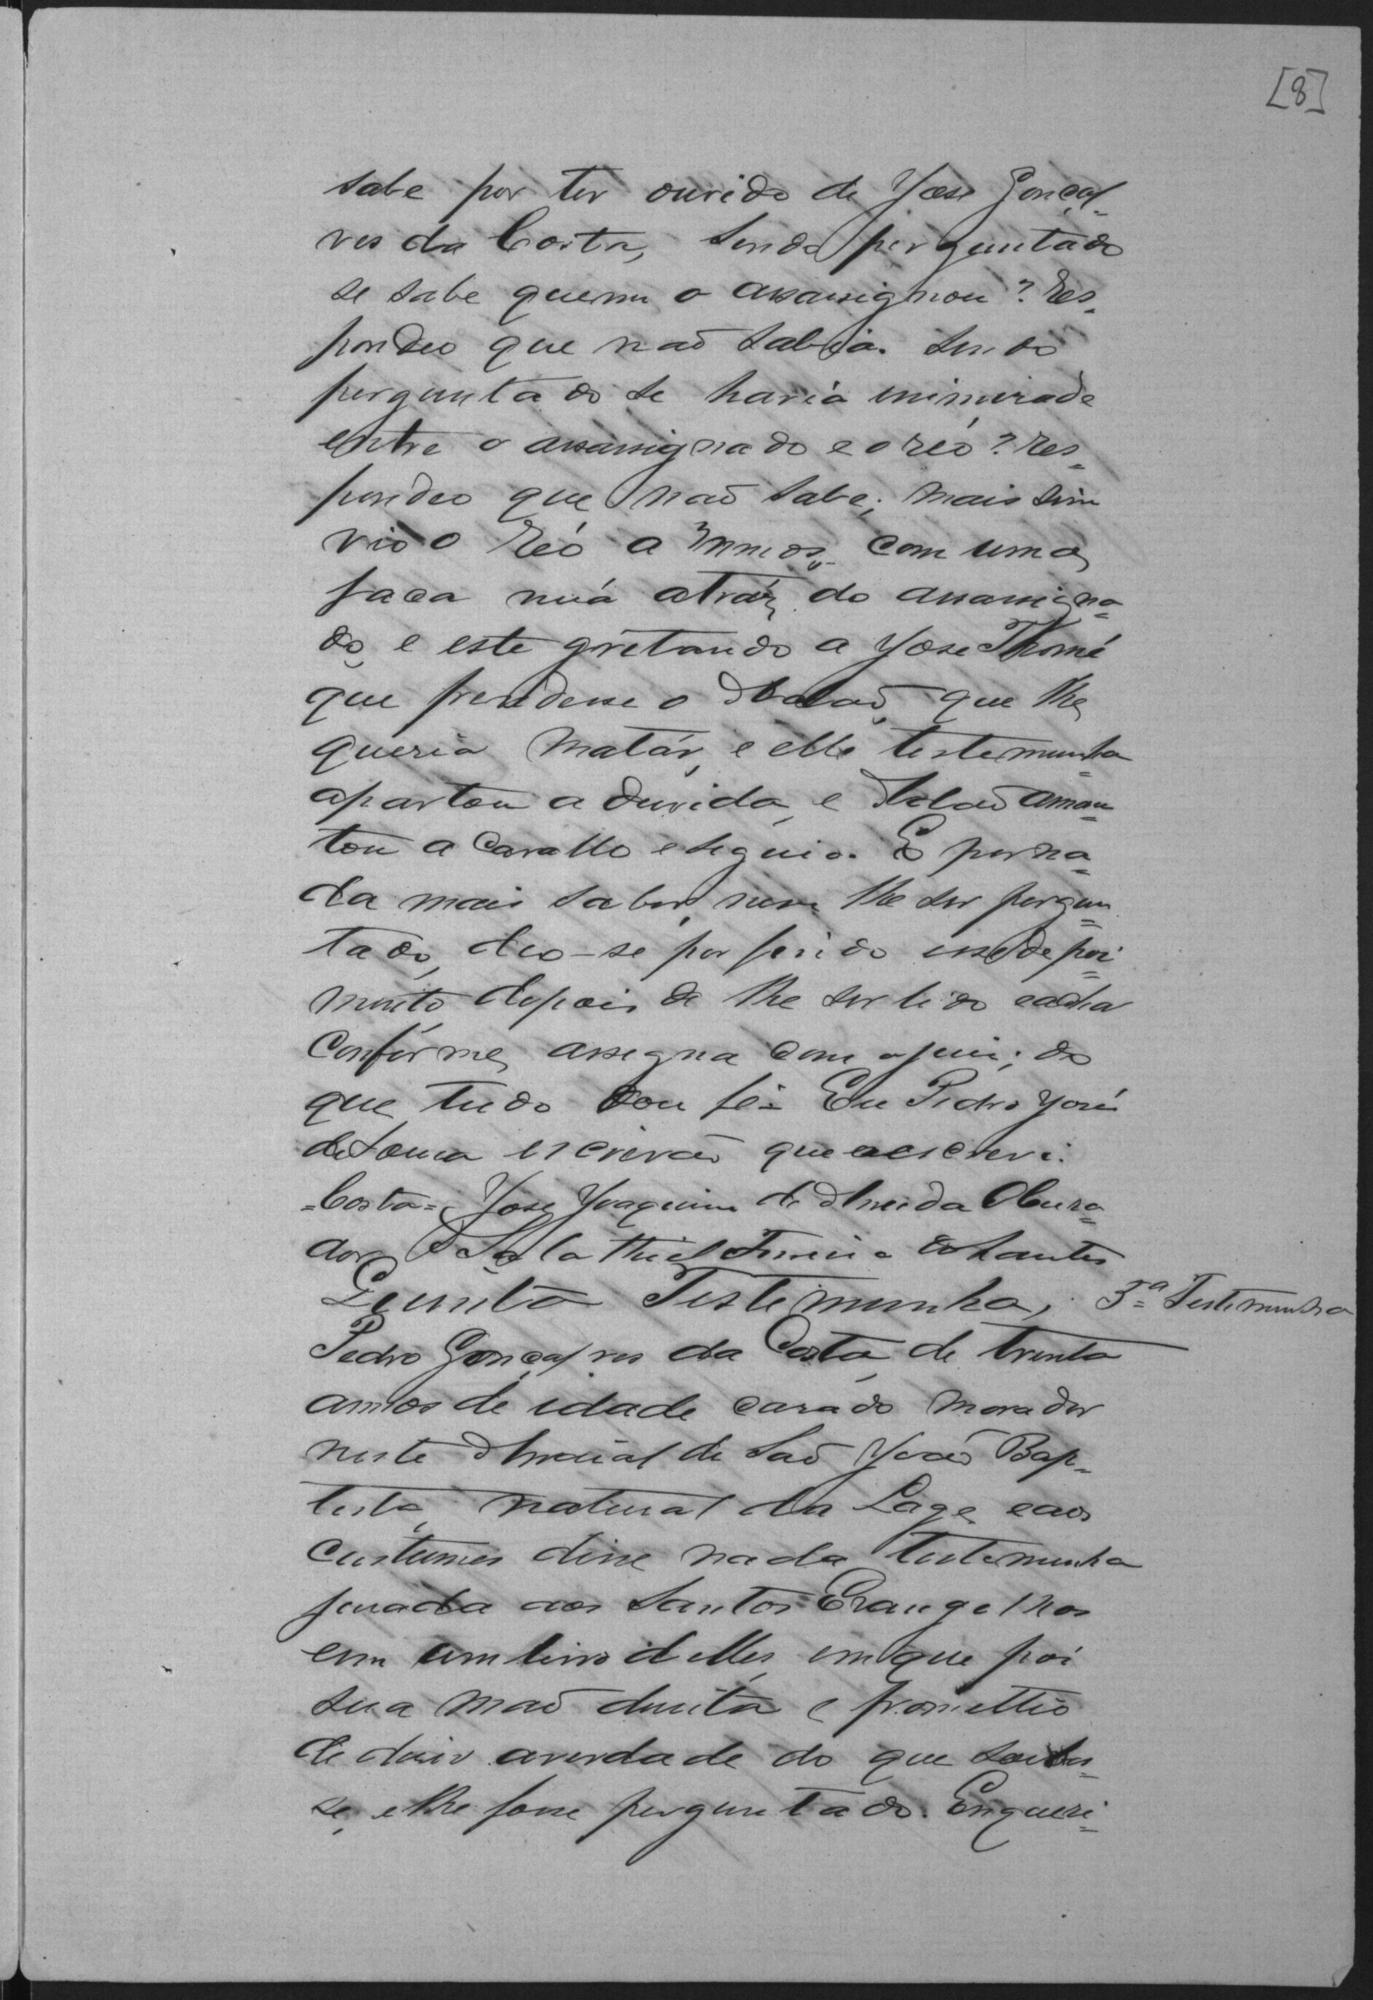 [8]
sabe por ter ouvido de Jose Gonçal=
ves da Costa, Sendo perguntado
se sabe quem o assassignou? Res=
pondeo que naõ Sabia. Sendo
perguntado se havia inimizade
entre o assassignado e o réo? res=
pondeo que naõ sabe; mais sim
vio o Réo a com uma
faca nuá atráz do assassigna=
do, e este gretando a Jose Thomé
que prendesse o que lhe
queria matár, e elle testemunha
apartou a duvida, e amon=
tou a cavallo e seguio. E por na=
da mais saber, nem lhe ser pergun=
tado, deo-se por findo esse depoi=
mento depois de lhe ser lido e achar
confórme, assegna com o juiz; do
que tudo dou fé. Eu Pedro José
de Souza escrivaõ que o escrevi.
=Costa= Jose Joaquim de Almeida
Salathiel dos Santos
Quinta Testimunha,
5ª Testemunha
Pedro Gonçalves da Costa, de trinta
annos de idade casado morador
neste Arraial de Saõ Joaõ Bap=
tista, natural da Lage, e aos
custumes disse nada, testemunha
jurada aos Santos Evangelhos
em um livro delles, em que poz
sua maõ direita e prometteo
de dizer a verdade do que soubes=
se, e lhe fosse perguntado. Enqueri=